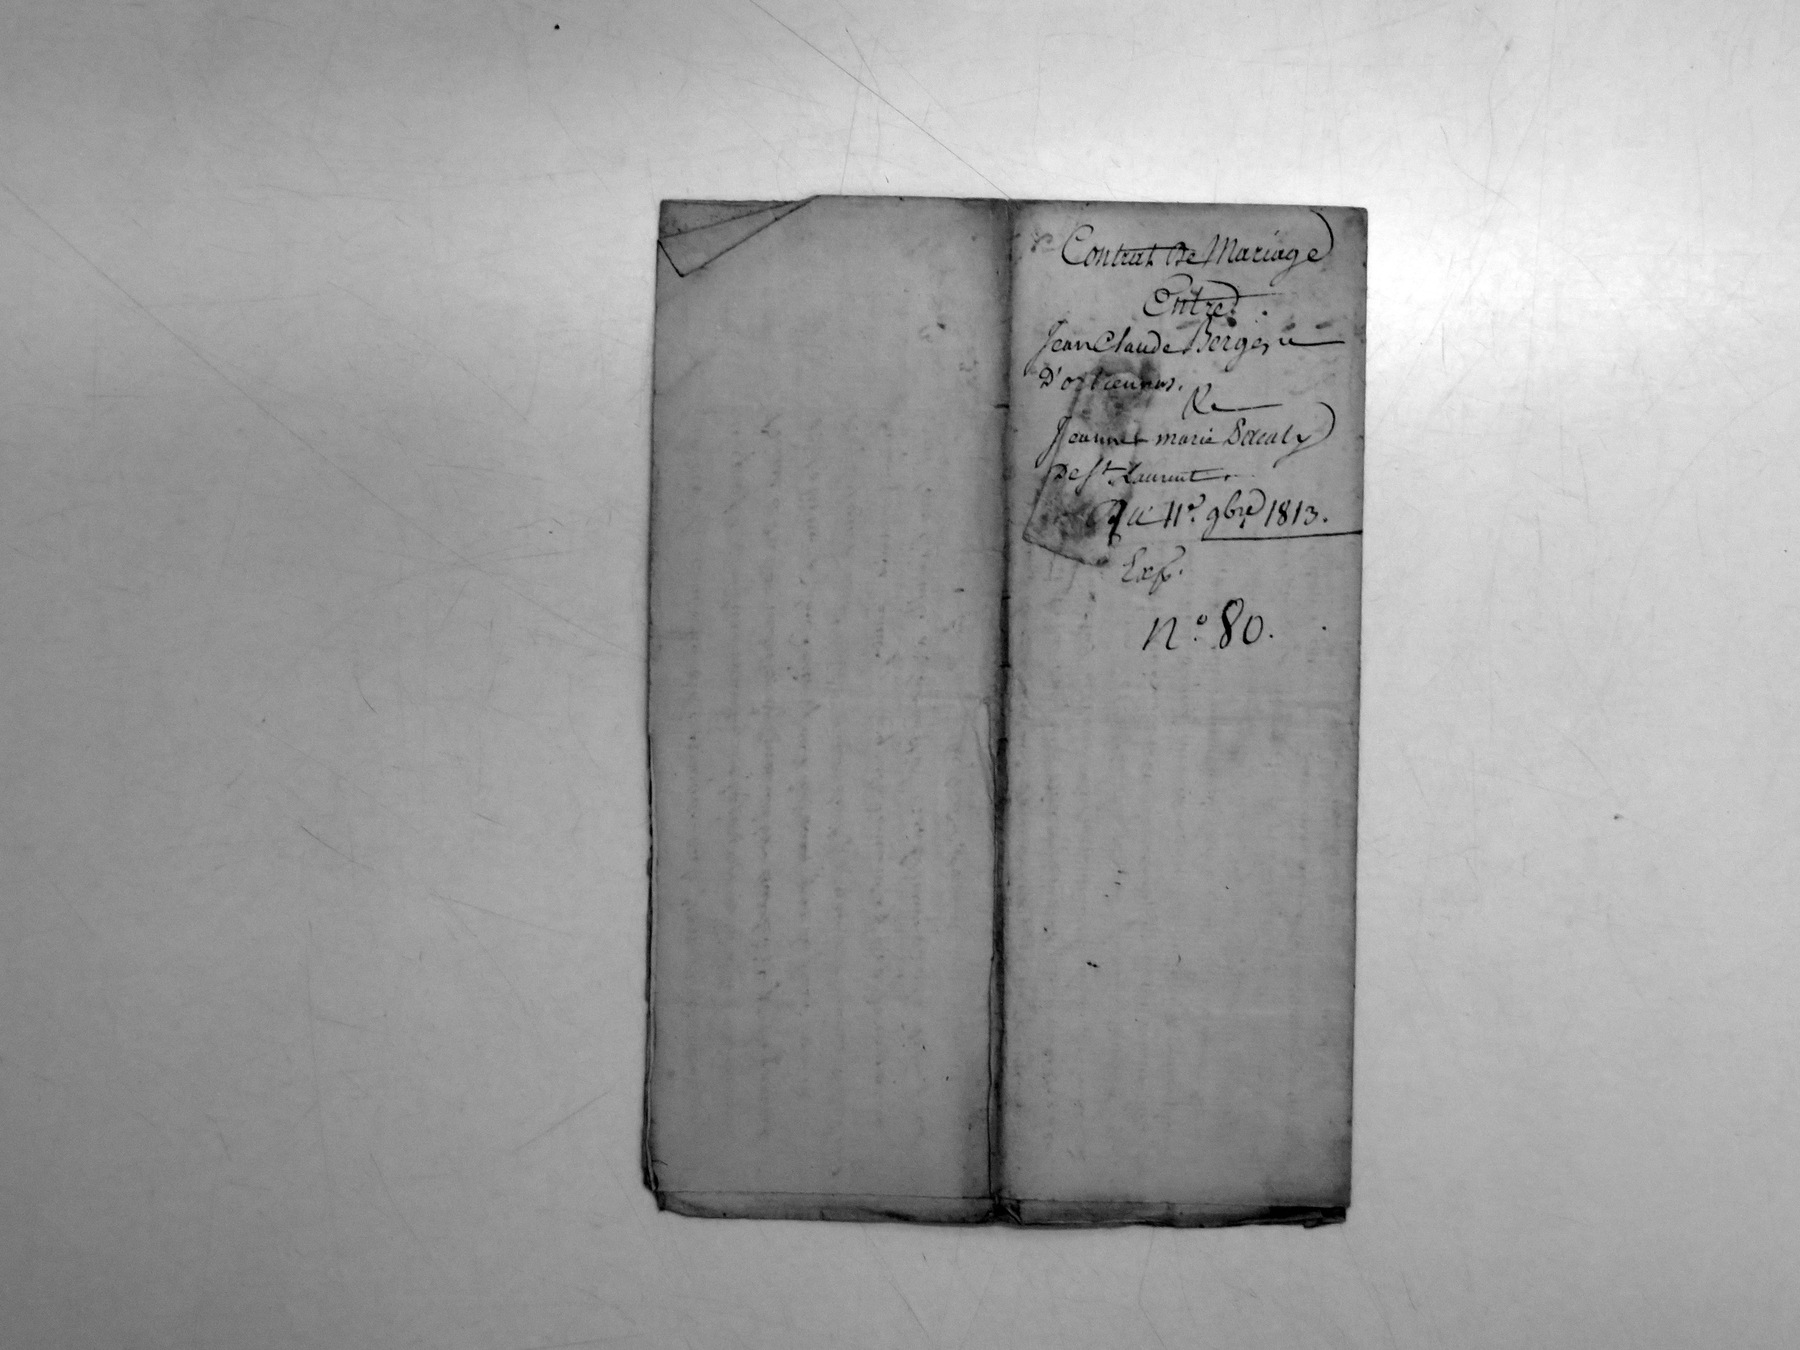 Contrat De Mariage
Entre
Jean Claude
D'orliennas.
Et
Jeanne marie
De St. Laurent
Du 11e. 9bre 1813.
Exp.
n.o 80.